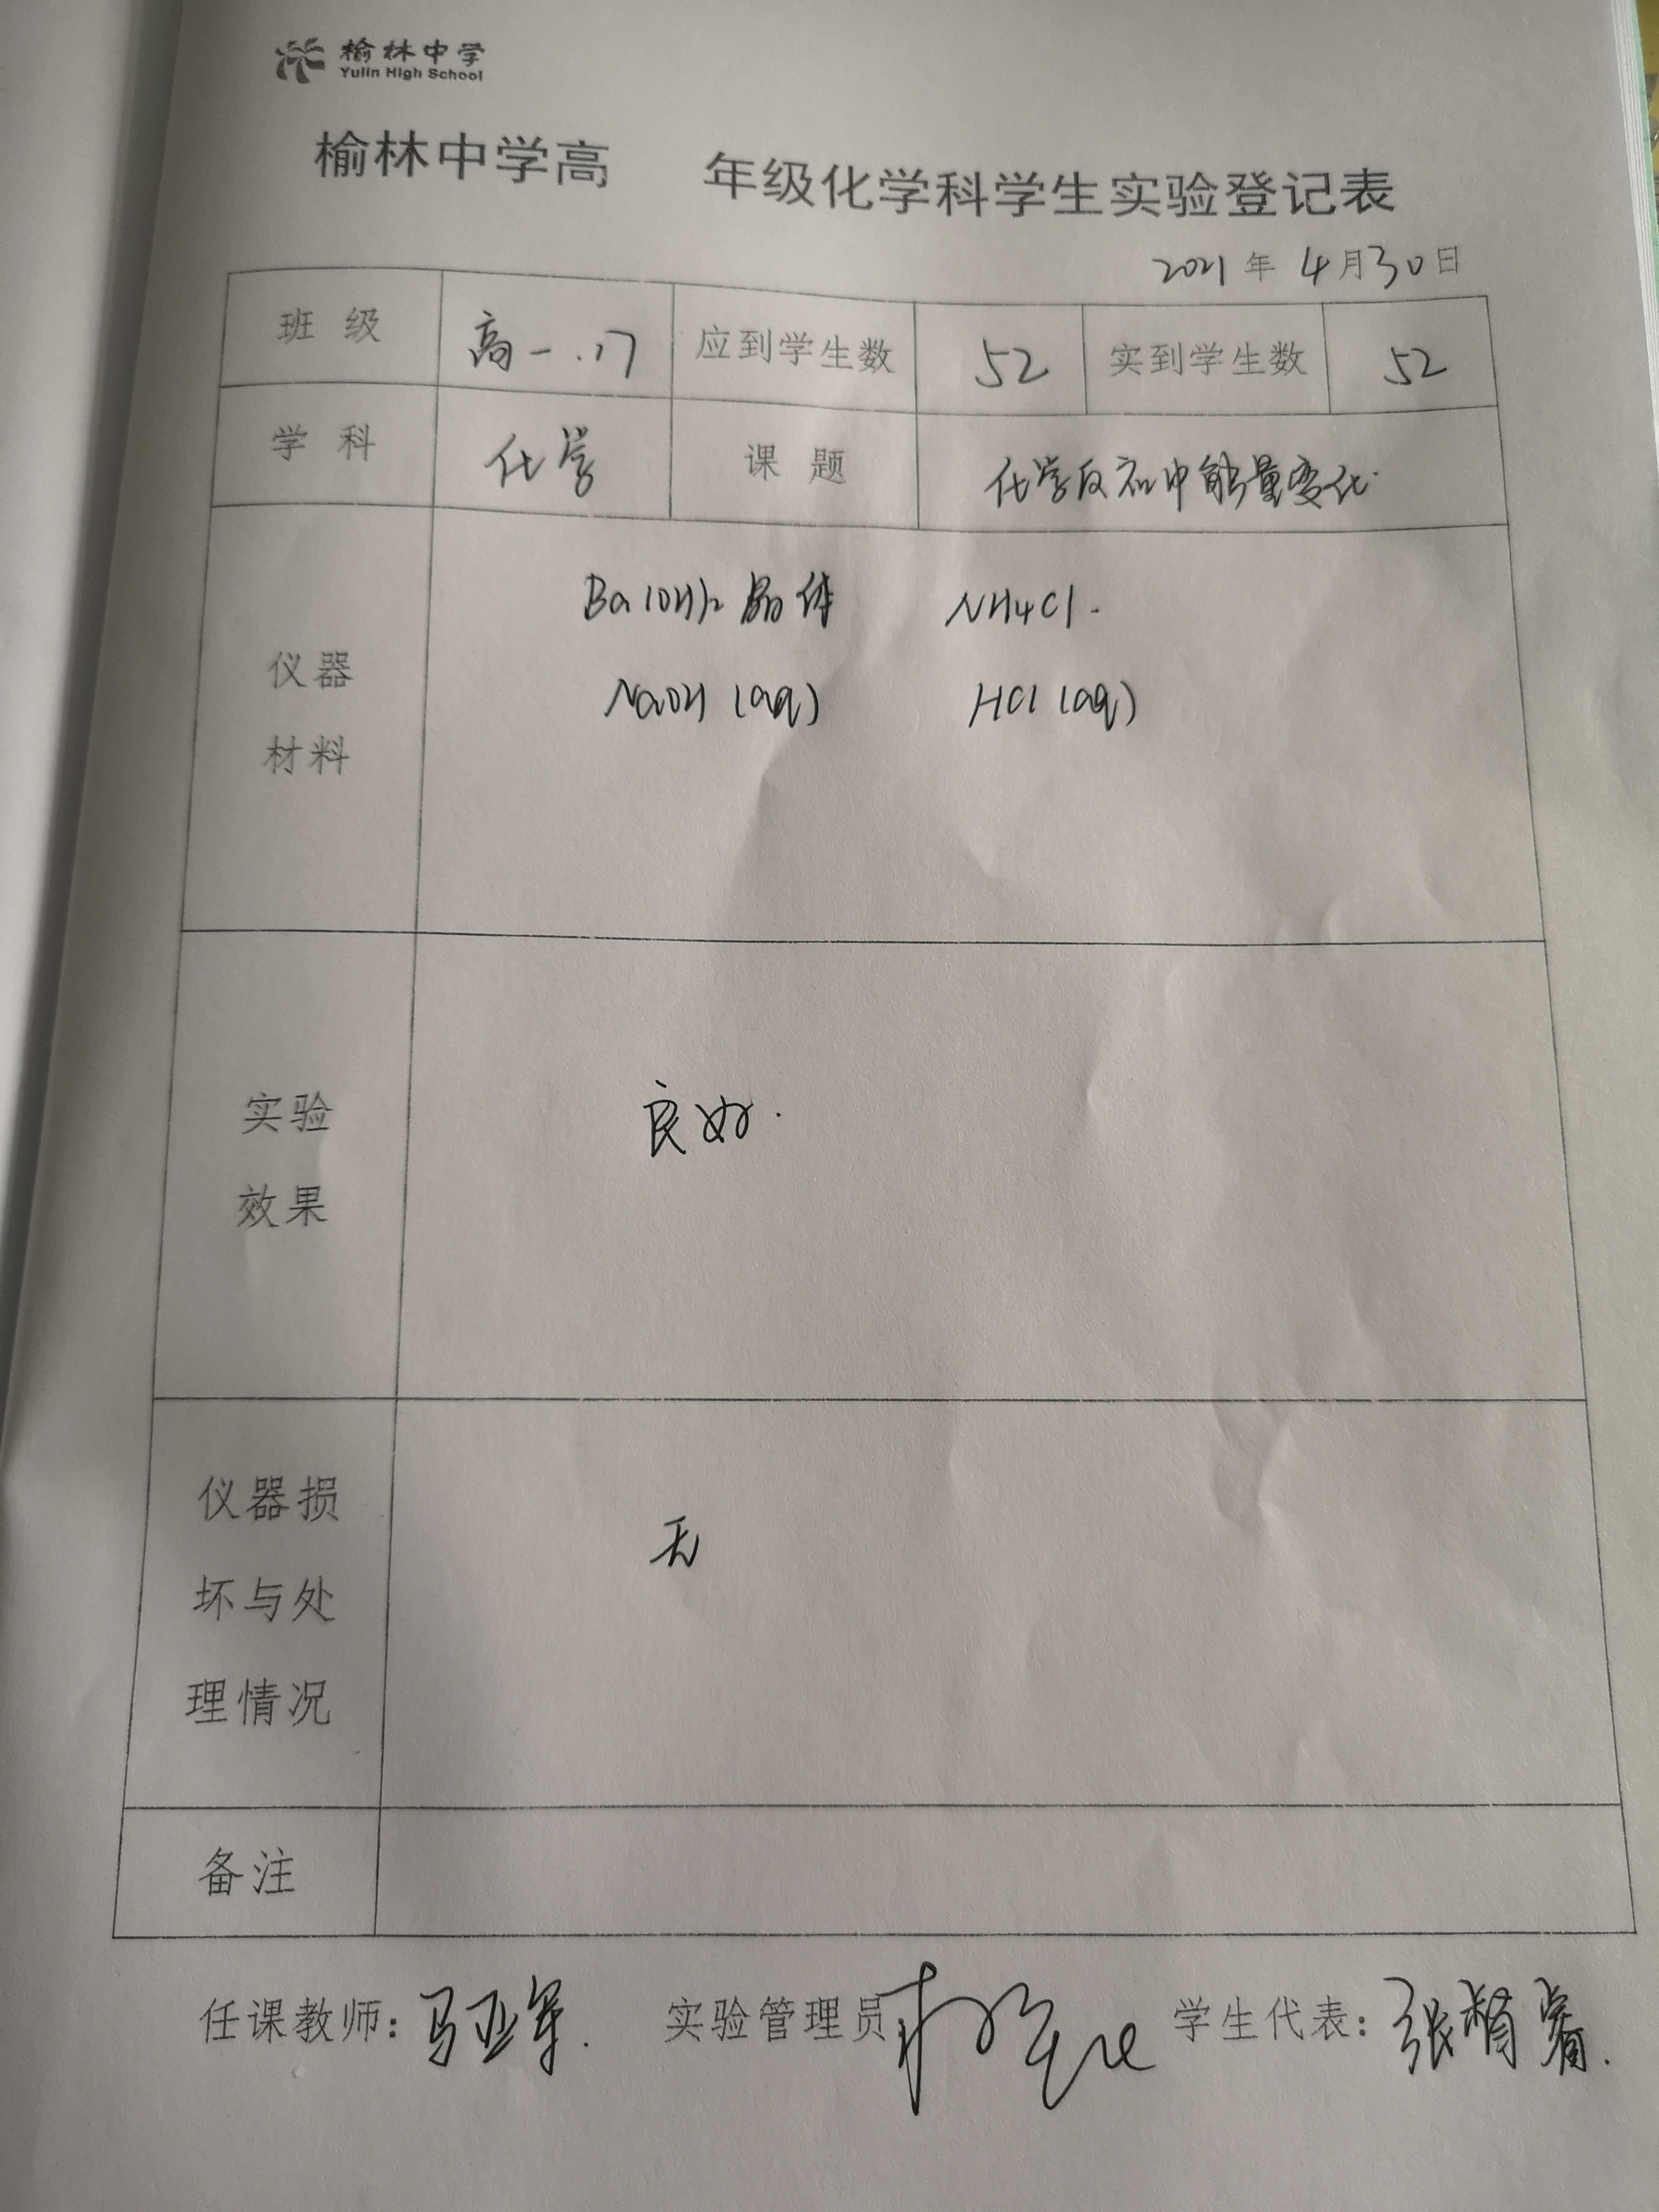 榆林中学
Yulin High School
榆林中学高 年级化学科学生实验登记表
2021年4月30日
班级 高一.17 应到学生数 52 实到学生数 52
学科 化学 课题 化学反应中能量变化.
Ba(OH)2晶体 NH4Cl.
仪器
NaOH(aq) HCl(aq)
材料
实验
良好.
效果
仪器损
无
坏与处
理情况
备注
任课教师:马亚军. 实验管理员 学生代表:张精睿.